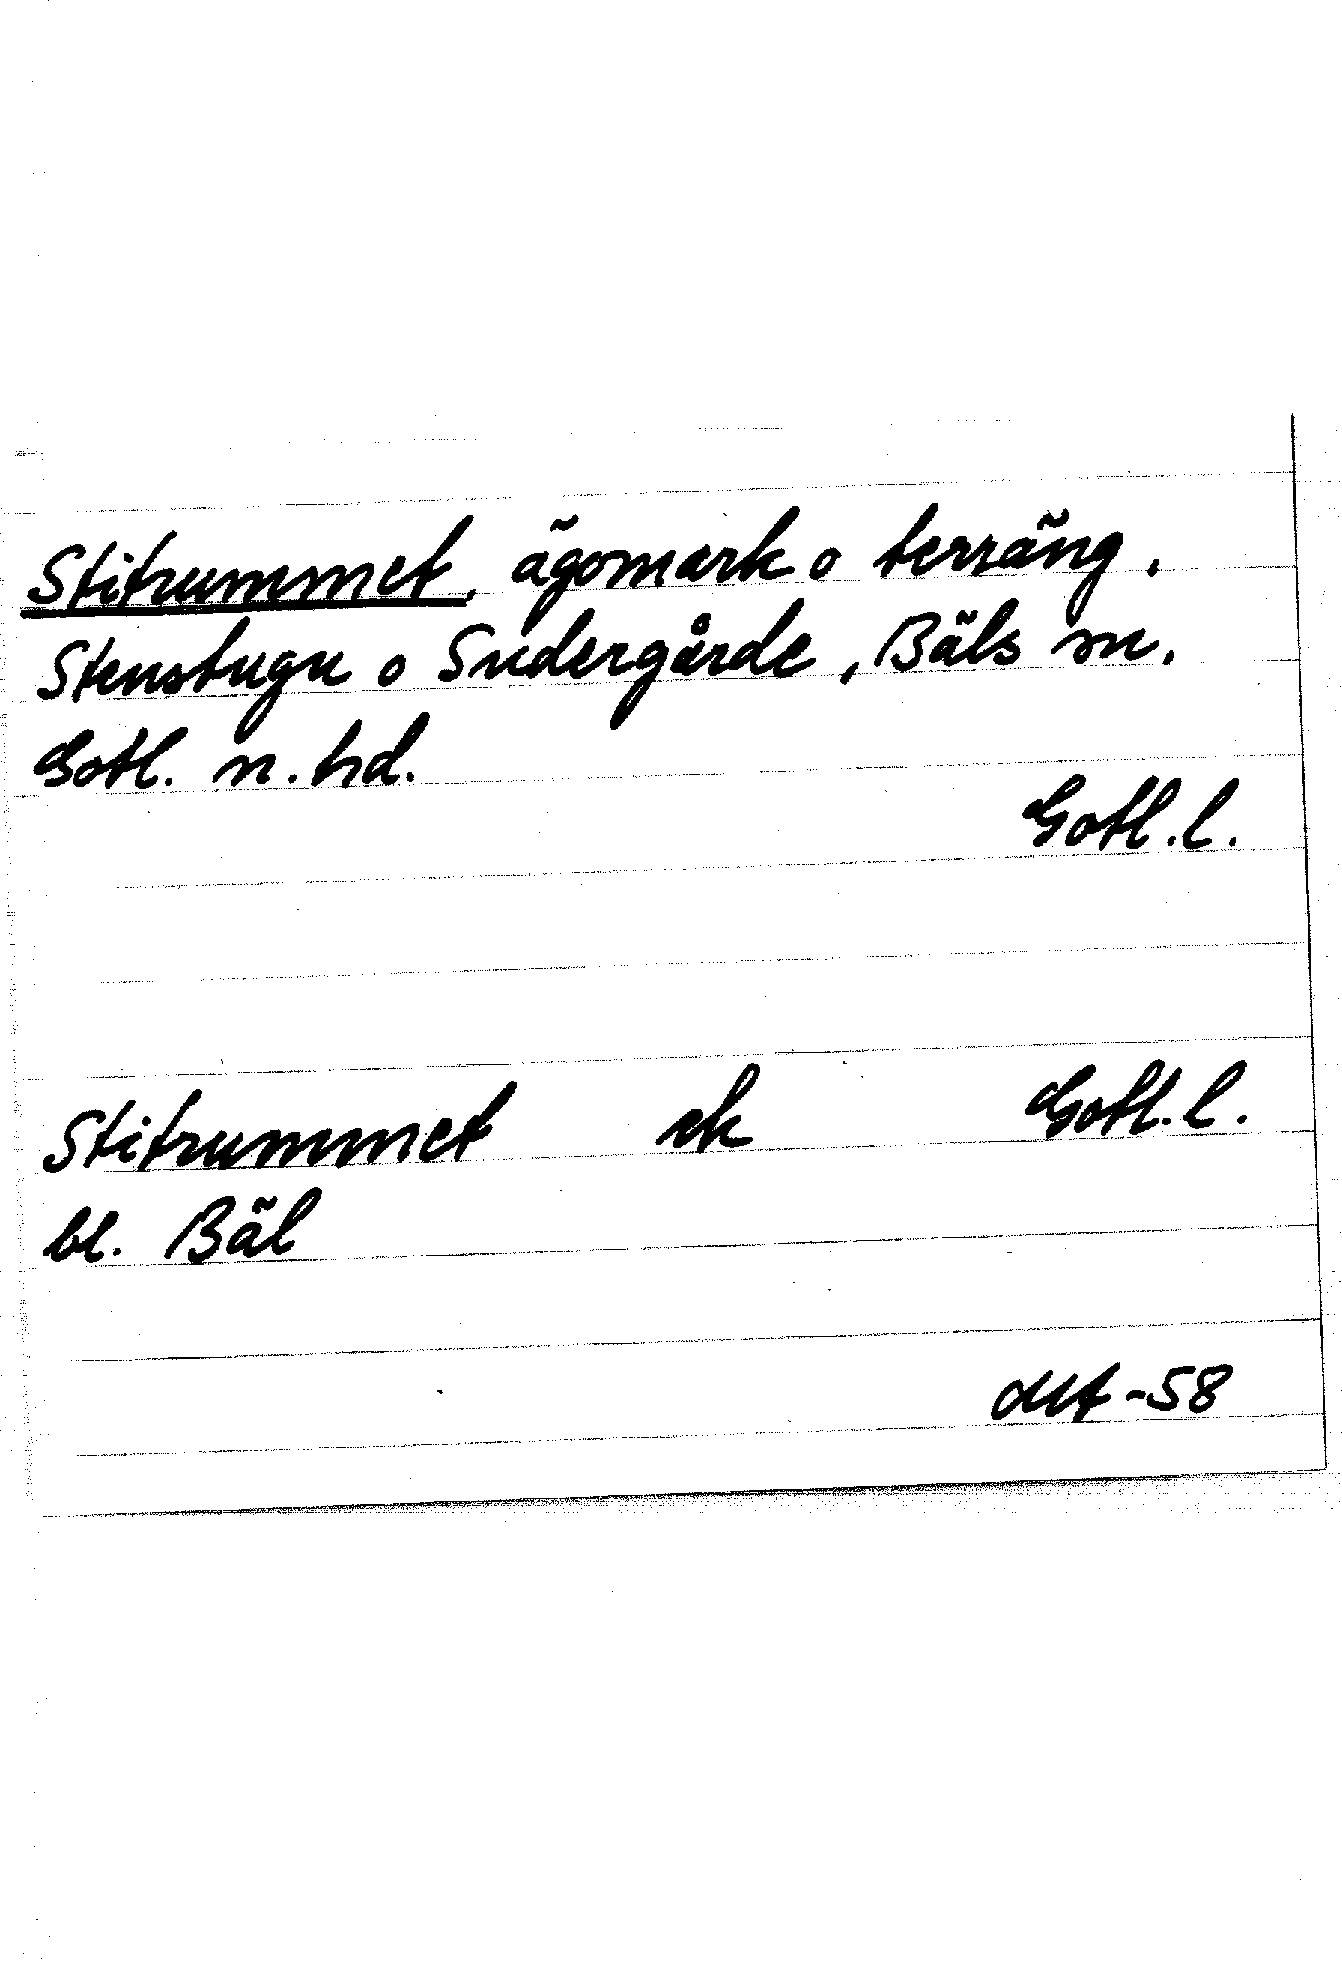 Stitrummet, ägomark o terräng,
Stenstugu o Sudergårde, Bäls sn,
Gotl. n. hd.
Gotl. l.
Stitrummet ek Gotl. l.
bl. Bäl
-58